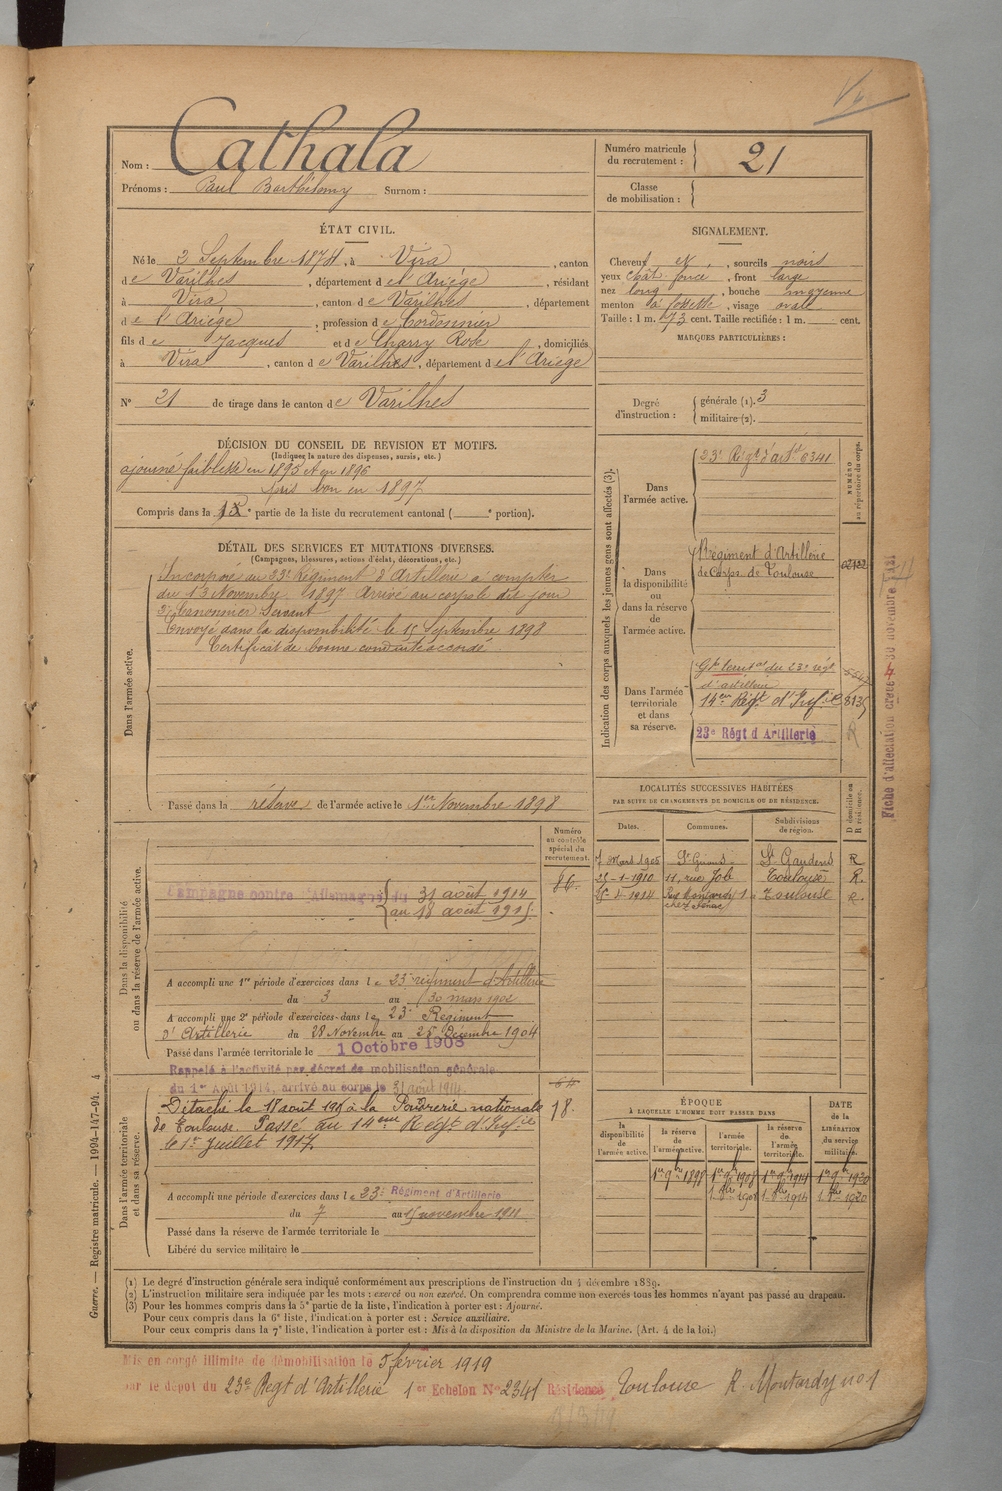 Cathala
Nom :
Prénoms : Paul Barthélemy Surnom :
Numéro matricule du recrutement : 21
Classe de mobilisation :
ÉTAT CIVIL.
Né le 2 Septembre 1874, à Vira, canton
de Varilhes, département de l'Ariège, résidant
à Vira, canton de Varilhes, département
de l'Ariège, profession de Cordonnier
fils de Jacques et de Charry Rose, domiciliés
à Vira, canton de Varilhes, département de l'Ariège
N° 21 de tirage dans le canton de Varilhes
SIGNALEMENT.
Cheveux et, sourcils noirs
yeux chât. foncé, front large
nez long, bouche moyenne
menton à fossette, visage ovale
Taille : 1 m. 73 cent. Taille rectifiée : 1 m. cent.
MARQUES PARTICULIÈRES :
Degré d'instruction : générale (1). 3
militaire (2).
DÉCISION DU CONSEIL DE REVISION ET MOTIFS.
(Indiquez la nature des dispenses, sursis, etc.)
ajourné faiblesse en 1895 et en 1896
pris bon en 1897
Compris dans la partie de la liste du recrutement cantonal ( e portion).
DÉTAIL DES SERVICES ET MUTATIONS DIVERSES.
(Campagnes, blessures, actions d'éclat, décorations, etc.)
Dans l'armée active.
Incorporé au 23e Régiment d'Artillerie à compter
du 13 Novembre 1897 Arrivé au corps le dit jour
Canonnier Servant
Envoyé dans la disponibilité le 15 Septembre 1898
Certificat de bonne conduite accordé
Passé dans la réserve de l'armée active le 1er Novembre 1898
Indication des corps auxquels les jeunes gens sont affectés (3).
NUMÉRO au répertoire du corps.
Dans l'armée active.
23e Régt d'artie 6341
Dans la disponibilité ou dans la réserve de l'armée active.
Régiment d'Artillerie
de Corps de Toulouse
Dans l'armée territoriale et dans sa réserve.
Gpe territal du 23e régt
d'artillerie
14e Régt d'Infie 8135
23e Régt d Artillerie R
Fiche d'affectation créée 30 novembre
LOCALITÉS SUCCESSIVES HABITÉES
PAR SUITE DE CHANGEMENTS DE DOMICILE OU DE RÉSIDENCE.
Dates. Communes. Subdivisions de région. D domicile ou R résidence.
Mars 1905 St Girons St Gaudens R
25-1-1910 11, rue Job Toulouse R.
1914 Rue Montardy 1 Toulouse R.
Dans la disponibilité ou dans la réserve de l'armée active.
Numéro au contrôle spécial du recrutement.
86.
Campagne contre l'Allemagne du 31 août 1914
au 18 août 1915.
A accompli une 1re période d'exercices dans le 23e régiment d'Artillerie
du 3 au 30 mars 1902
A accompli une 2e période d'exercices dans le 23e Régiment
d'Artillerie du 28 Novembre au 25 Décembre 1904
Passé dans l'armée territoriale le 1 Octobre 1908
Rappelé à l'activité par décret de mobilisation générale
du 1er Août 1914, arrivé au corps le 31 août 1914.
Dans l'armée territoriale et dans sa réserve.
Détaché le 18 août 1915 à la Poudrerie nationale 18.
de Toulouse. Passé au 14eme Régt d'Infie
le 1er Juillet 1917
A accompli une période d'exercices dans le 23e Régiment d'Artillerie
du 7 au 15 novembre 1911
Passé dans la réserve de l'armée territoriale le
Libéré du service militaire le
ÉPOQUE
À LAQUELLE L'HOMME DOIT PASSER DANS
la disponibilité de l'armée active.
la réserve de l'armée active.
l'armée territoriale.
la réserve de l'armée territoriale.
DATE de la LIBÉRATION du service militaire.
1er 9bre 1898 1er 9bre 1908 1er 9bre 1914 1er 9bre 1920
(1) Le degré d'instruction générale sera indiqué conformément aux prescriptions de l'instruction du 4 décembre 1889.
(2) L'instruction militaire sera indiquée par les mots : exercé ou non exercé. On comprendra comme non exercés tous les hommes n'ayant pas passé au drapeau.
(3) Pour les hommes compris dans la 5e partie de la liste, l'indication à porter est : Ajourné.
Pour ceux compris dans la 6e liste, l'indication à porter est : Service auxiliaire.
Pour ceux compris dans la 7e liste, l'indication à porter est : Mis à la disposition du Ministre de la Marine. (Art. 4 de la loi.)
Guerre. — Registre matricule. — 1994-147-94. 4
Mis en congé illimité de démobilisation le 5 février 1919
par le dépôt du 23e Régt d'Artillerie 1er Echelon N° 2341 Résidence Toulouse R. Montardy no 1